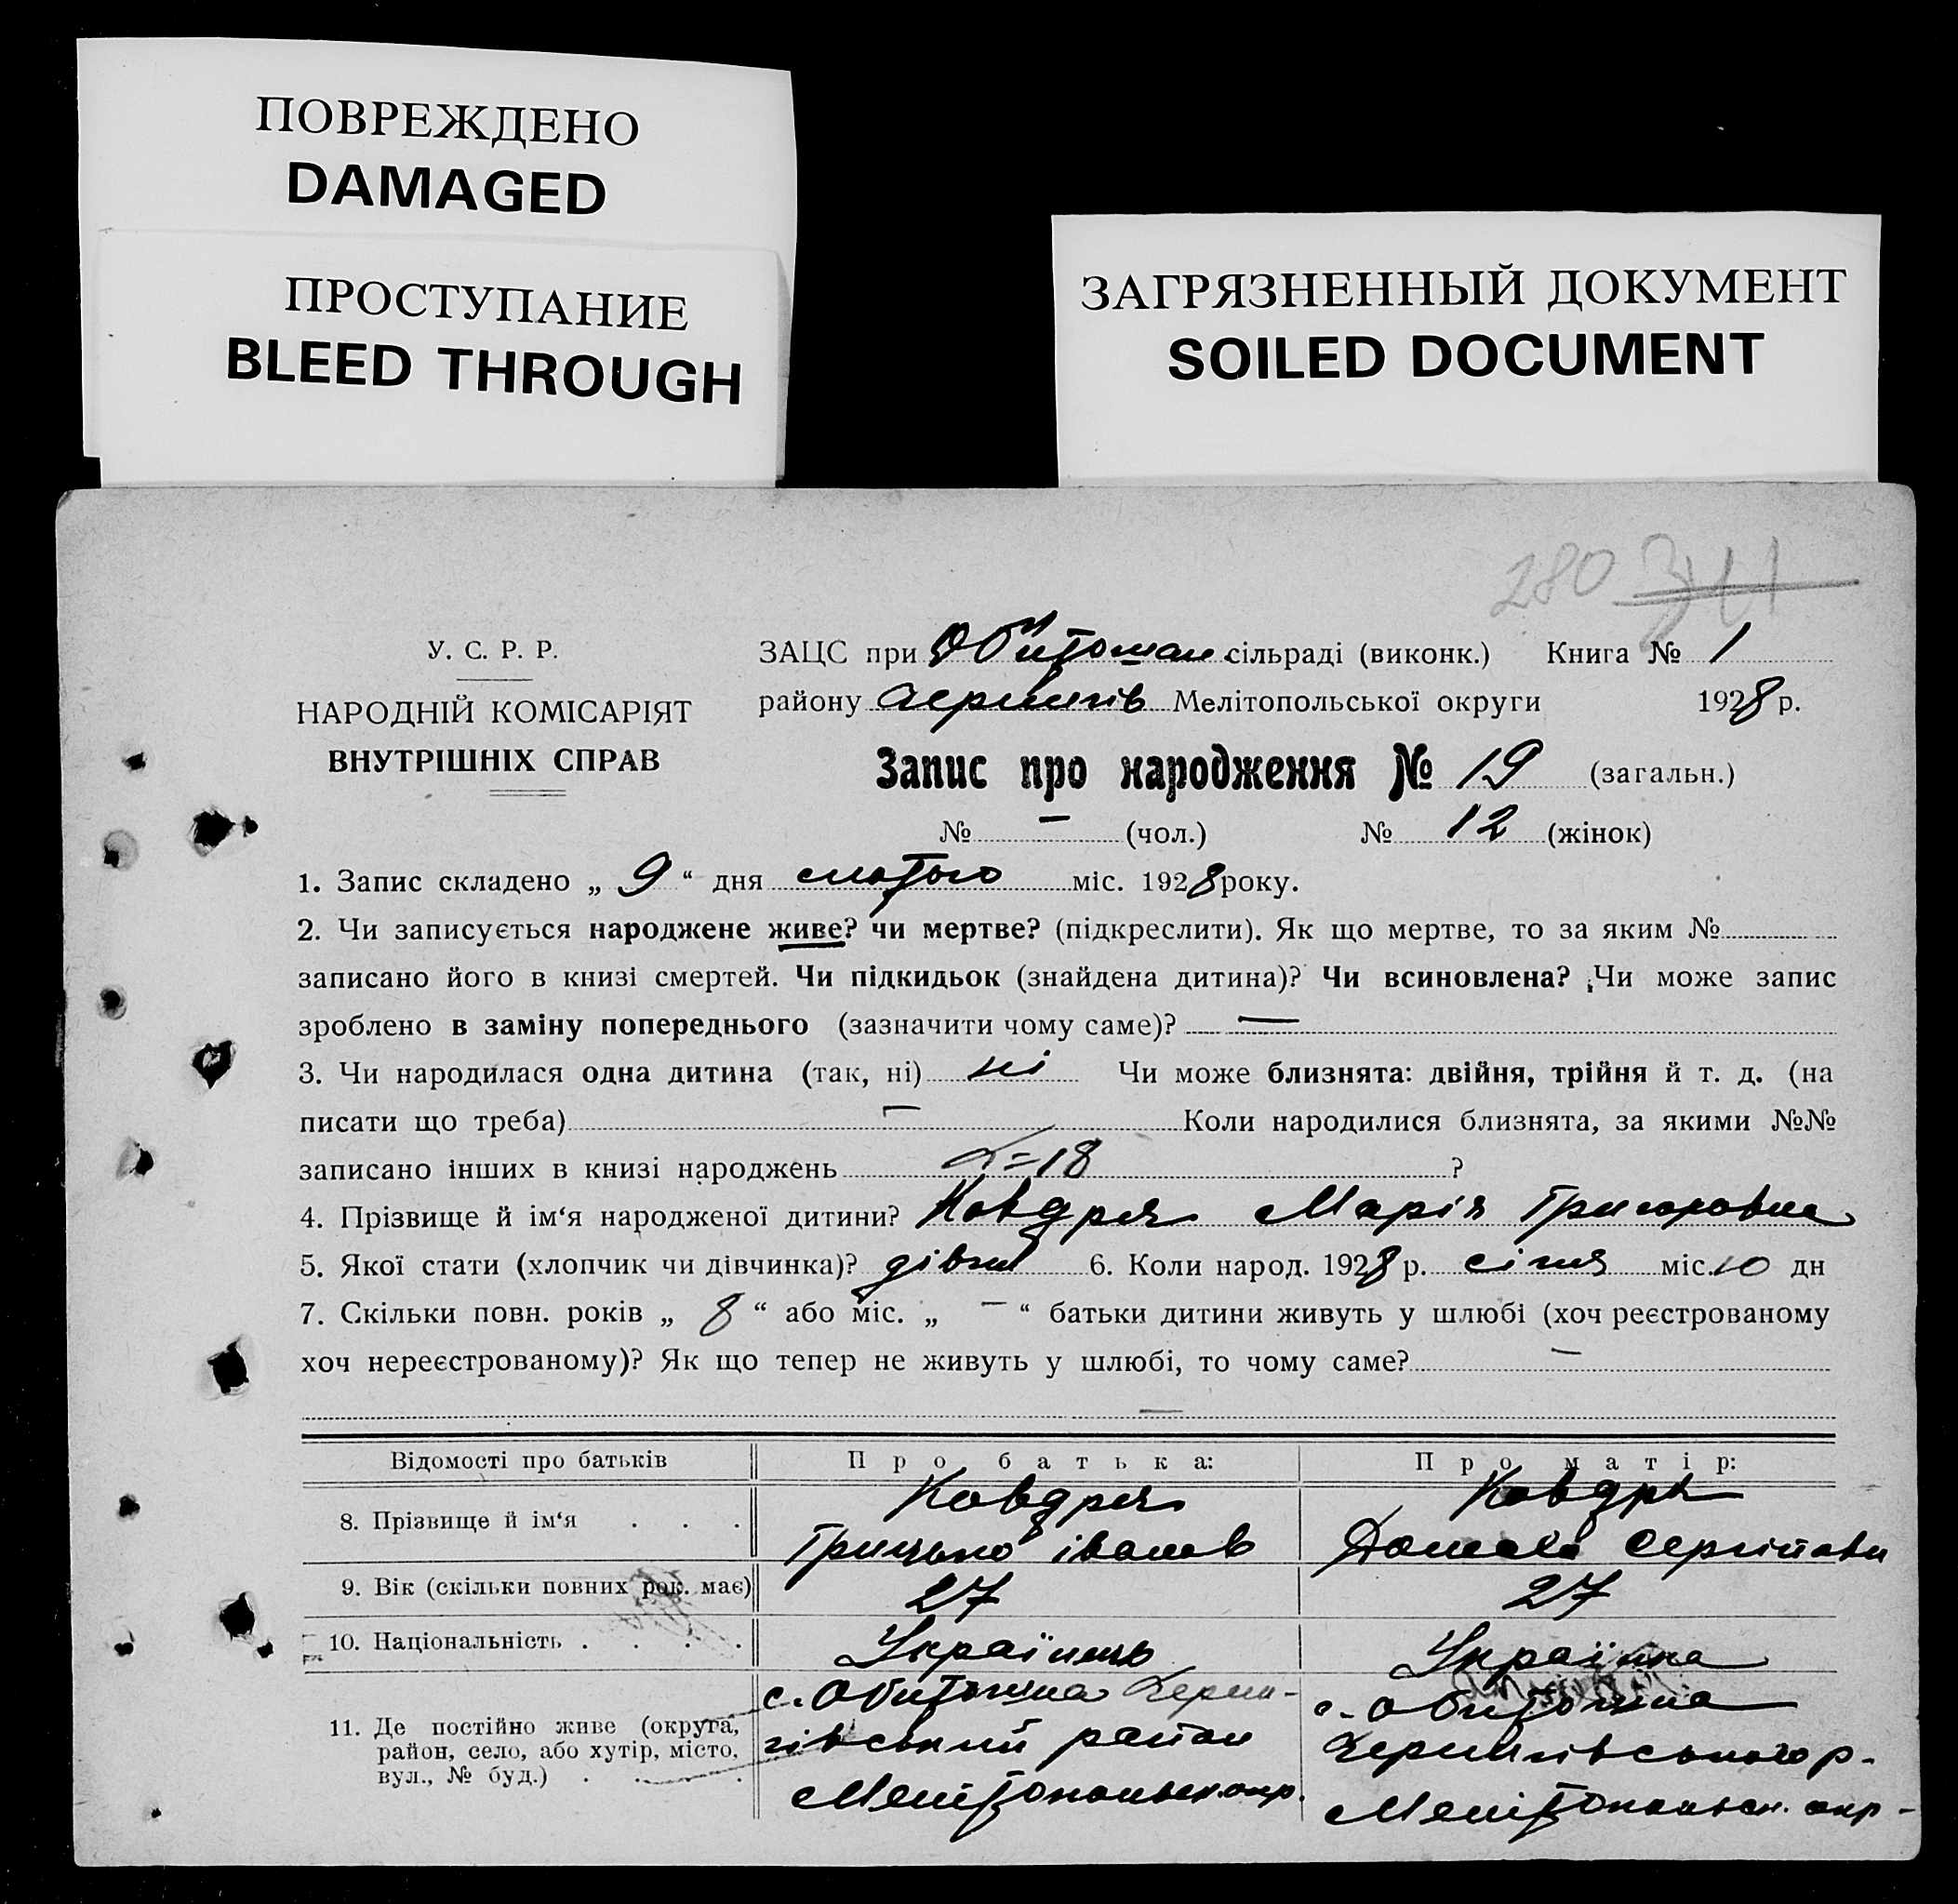 ПОВРЕЖДЕНО
DAMAGED
ПРОСТУПАНИЕ
BLEED THROUGH
ЗАГРЯЗНЕННЫЙ ДОКУМЕНТ
SOILED DOCUMENT
280 341
У. С. Р. Р.
НАРОДНІЙ КОМІСАРІЯТ
ВНУТРІШНІХ СПРАВ
ЗАЦС при Обиточан сільраді (виконк.) Книга № 1
району Чернигів Мелітопольської округи 1928 р.
Запис про народження № 19 (загальн.)
№ — (чол.) № 12 (жінок)
1. Запис складено „ 9 “ дня лютого міс. 1928 року.
2. Чи записується народжене живе? чи мертве? (підкреслити). Як що мертве, то за яким №
записано його в книзі смертей. Чи підкидьок (знайдена дитина)? Чи всиновлена? Чи може запис
зроблено в заміну попереднього (зазначити чому саме)? —
3. Чи народилася одна дитина (так, ні) ні Чи може близнята: двійня, трійня й т. д. (на
писати що треба) — Коли народилися близнята, за якими №№
записано інших в книзі народжень 18 ?
4. Прізвище й ім‘я народженої дитини? Ковдря Марія Григоровна
5. Якої стати (хлопчик чи дівчинка)? дівч 6. Коли народ. 1928 р. січня міс. 10 дн
7. Скільки повн. років „ 8 “ або міс. „ — “ батьки дитини живуть у шлюбі (хоч реєстрованому
хоч нереєстрованому)? Як що тепер не живуть у шлюбі, то чому саме? —
—
Відомості про батьків Про батька: Про матір:
8. Прізвище й ім‘я . . . Ковдря Ковдря
Грицько іванов Домаха Сергійовн
9. Вік (скільки повних рок. має) 27 27
10. Національність . . . . Українець Українка
11. Де постійно живе (округа, район, село, або хутір, місто, вул., № буд.) . . .
с. Обиточна Черни-
гівський район
Мелітопольськ. окр.
с. Обиточна
Чернигівського р-
Мелітопольськ. окр-